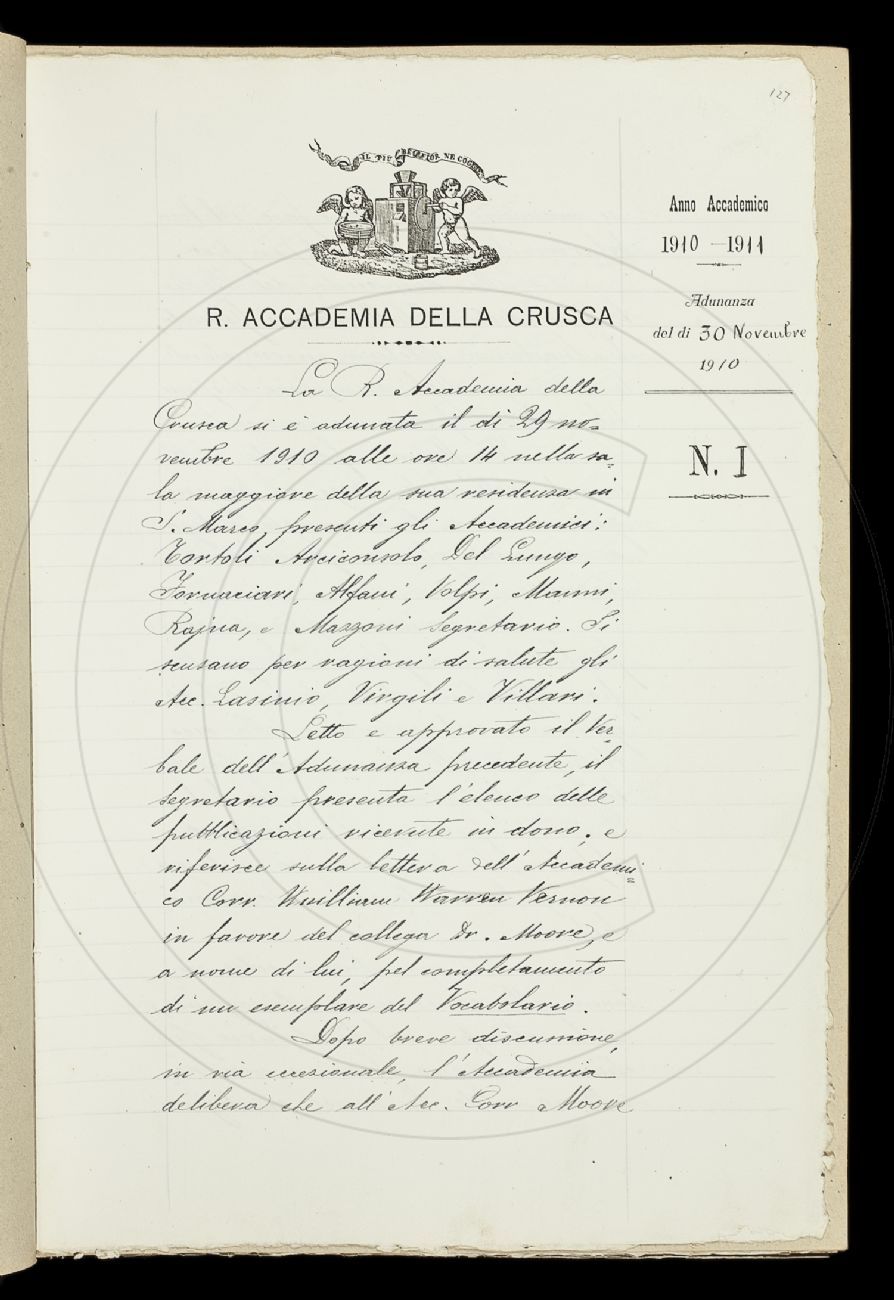 127
IL PIÙ BEL FIOR NE COGLIE
R. ACCADEMIA DELLA CRUSCA
Anno Accademico
1910-1911
Adunanza
del dì 30 Novembre
1910
N. I
La R. Accademia della
Crusca si è adunata il dì 29 no=
vembre 1910 alle ore 14 nella sa=
la maggiore della sua residenza in
S. Marco, presenti gli Accademici:
Tortoli Arciconsolo, Del Lungo,
Fornaciari, Alfani, Volpi, Mazzoni,
Rajna, e Mazzoni Segretario. Si
scusano per ragioni di salute gli
Acc. Lasinio, Virgili e Villari.
Letto e approvato il Ver=
bale dell'Adunanza precedente, il
Segretario presenta l'elenco delle
pubblicazioni ricevute in dono; e
riferisce sulla lettera dell'Accademi=
co Corr. Wuilliam Warren Vernon
in favore del collega Dr. Moore, e
a nome di lui, pel completamento
di un esemplare del Vocabolario.
Dopo breve discussione,
in via eccezionale, l'Accademia
delibera che all'Acc. Corr Moore